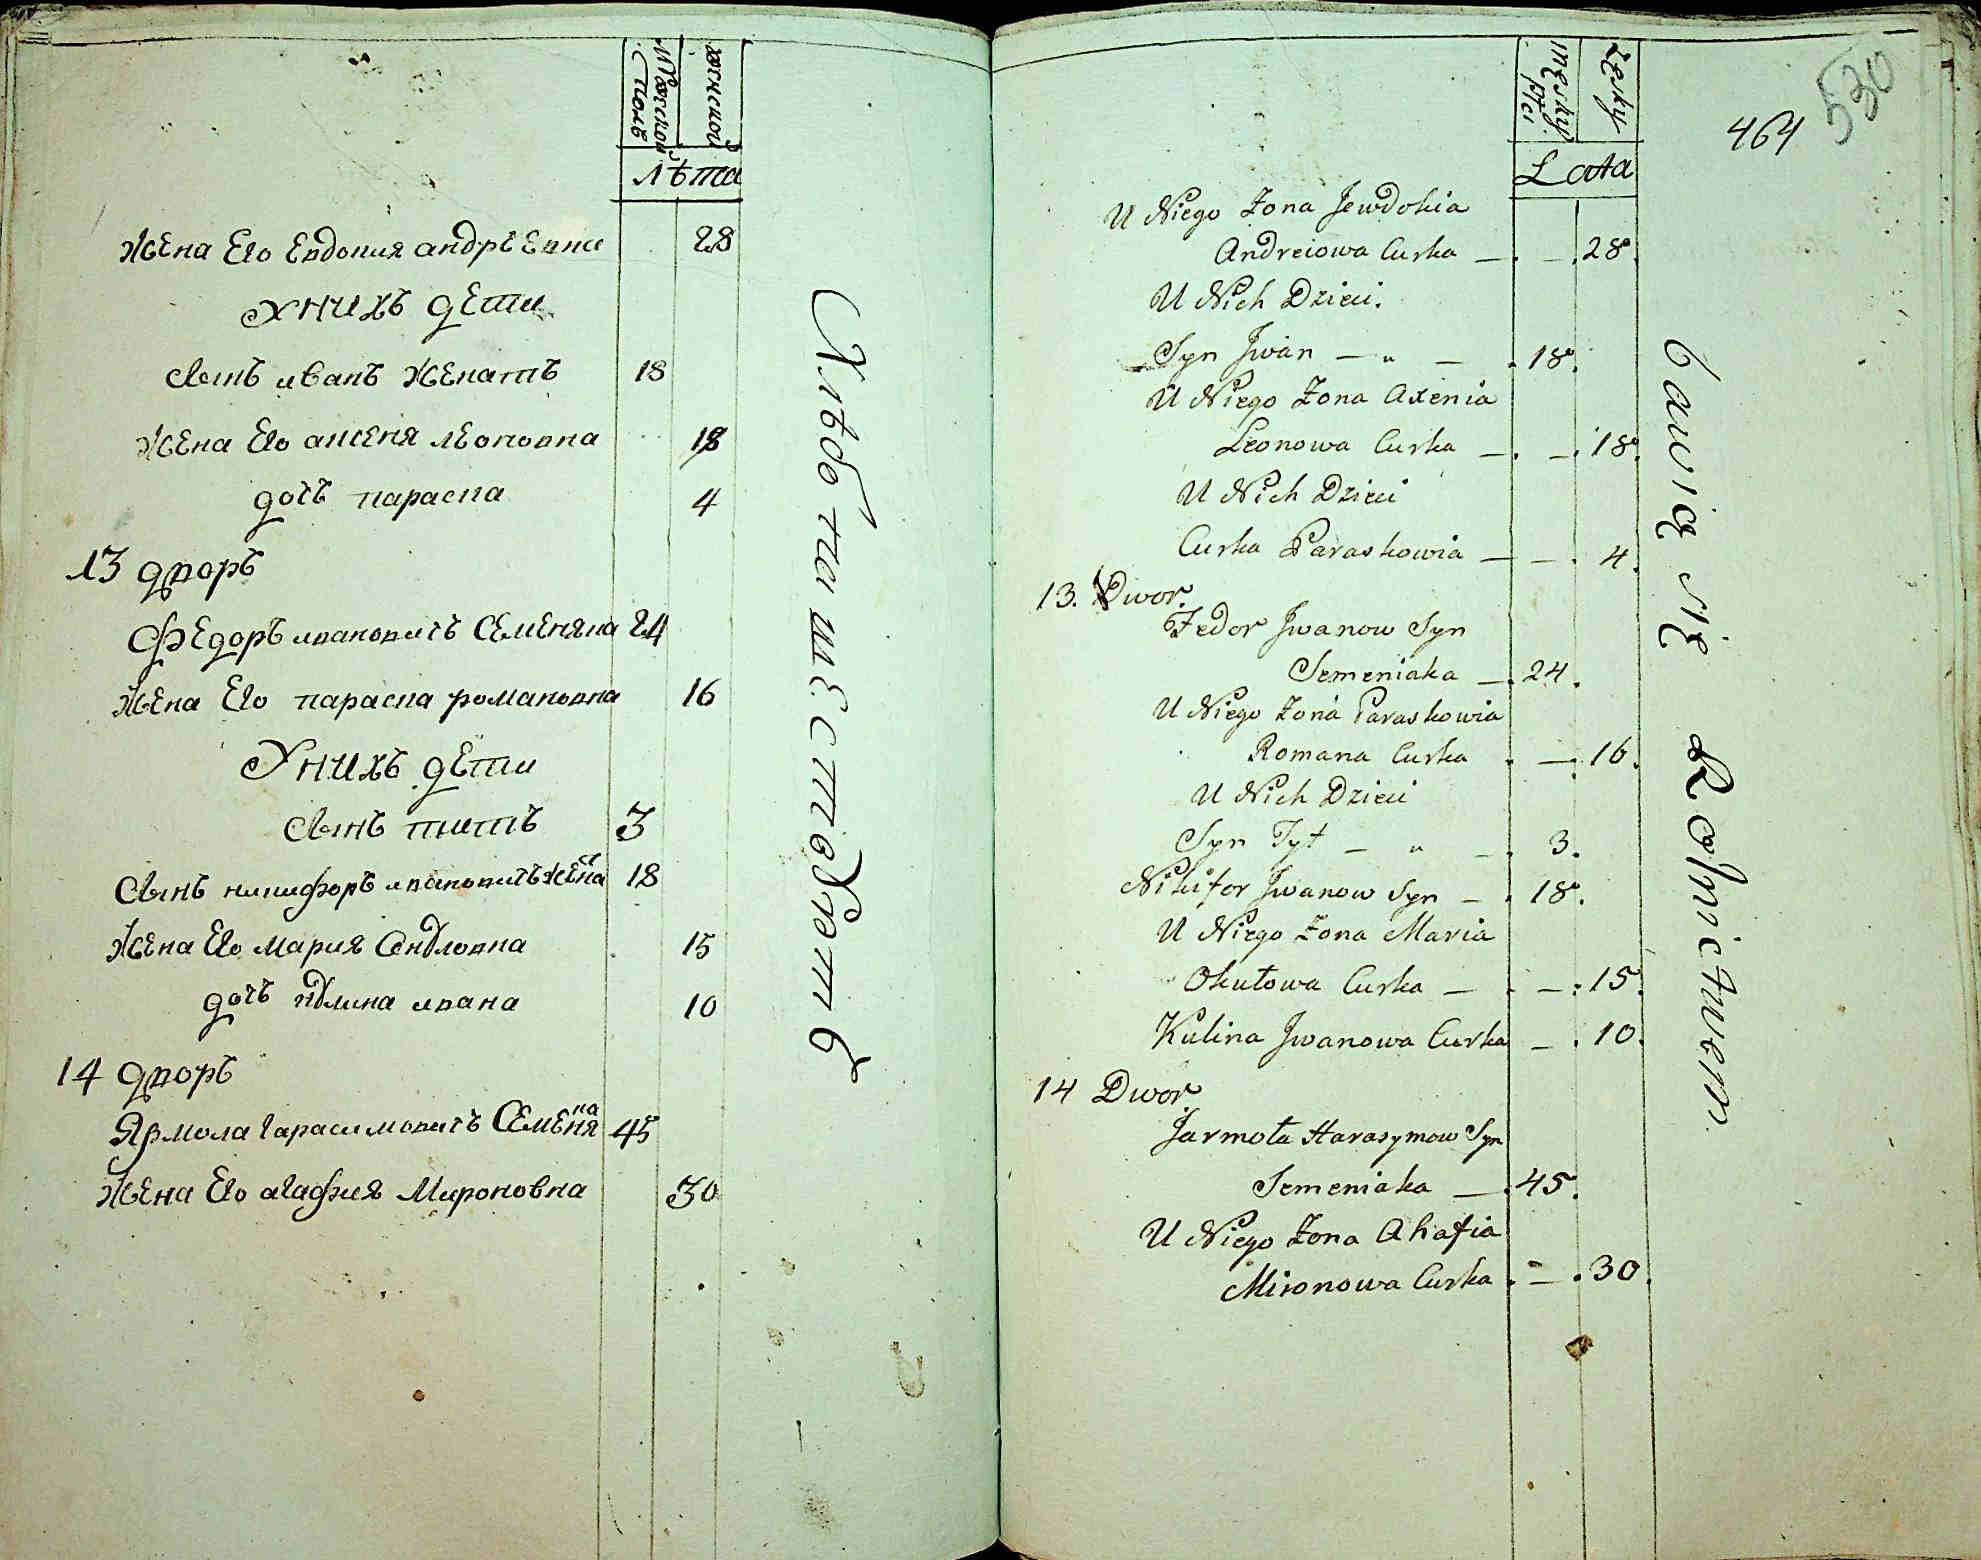 Мꙋжской Полъ
женской
лѣта
Жена Его Евдокия андрѣевна 28
Ꙋнихъ дети
Сынъ иванъ женатъ 18
Жена Его аксеня леоновна 18
дочъ параска 4
13 дворъ
Федоръ ивановичъ Семеняка 24
Жена Его параска романовна 16
Унихъ дети
Сынъ титъ 3
Сынъ никифоръ ивановичъ жена 18
Жена Его Мария 15
дочъ ивана 10
14 дворъ
Ярмола гарасимовичъ Семеняка 45
Жена Его агафия Мироновна 30
Хлѣбопашествомъ
530
464
męsky płci
żesky
Lata
U Niego Żona Jewdokia
Andreiowa Curka — . — . 28.
U Nich Dzieci.
Syn Jwan — „ — . 18.
U Niego Żona Axenia
Leonowa Curka — . — . 18.
U Nich Dzieci
Curka Paraskowia — — . 4.
13. Dwor.
Fedor Jwanow Syn
Semeniaka — . 24.
U Niego Żona Paraskowia
Romana Curka . — . 16.
U Nich Dzieci
Syn Tyt — „ — . 3.
Nikifor Jwanow Syn — . 18.
U Niego Żona Maria
Okułowa Curka — . — : 15.
Kulina Jwanowa Curka — . 10.
14 Dwor
Jarmoła Harasymow Syn
Semeniaka — . 45.
U Niego Żona Ahafia
Mironowa Curka . — . 30.
bawią się Rolnictwem